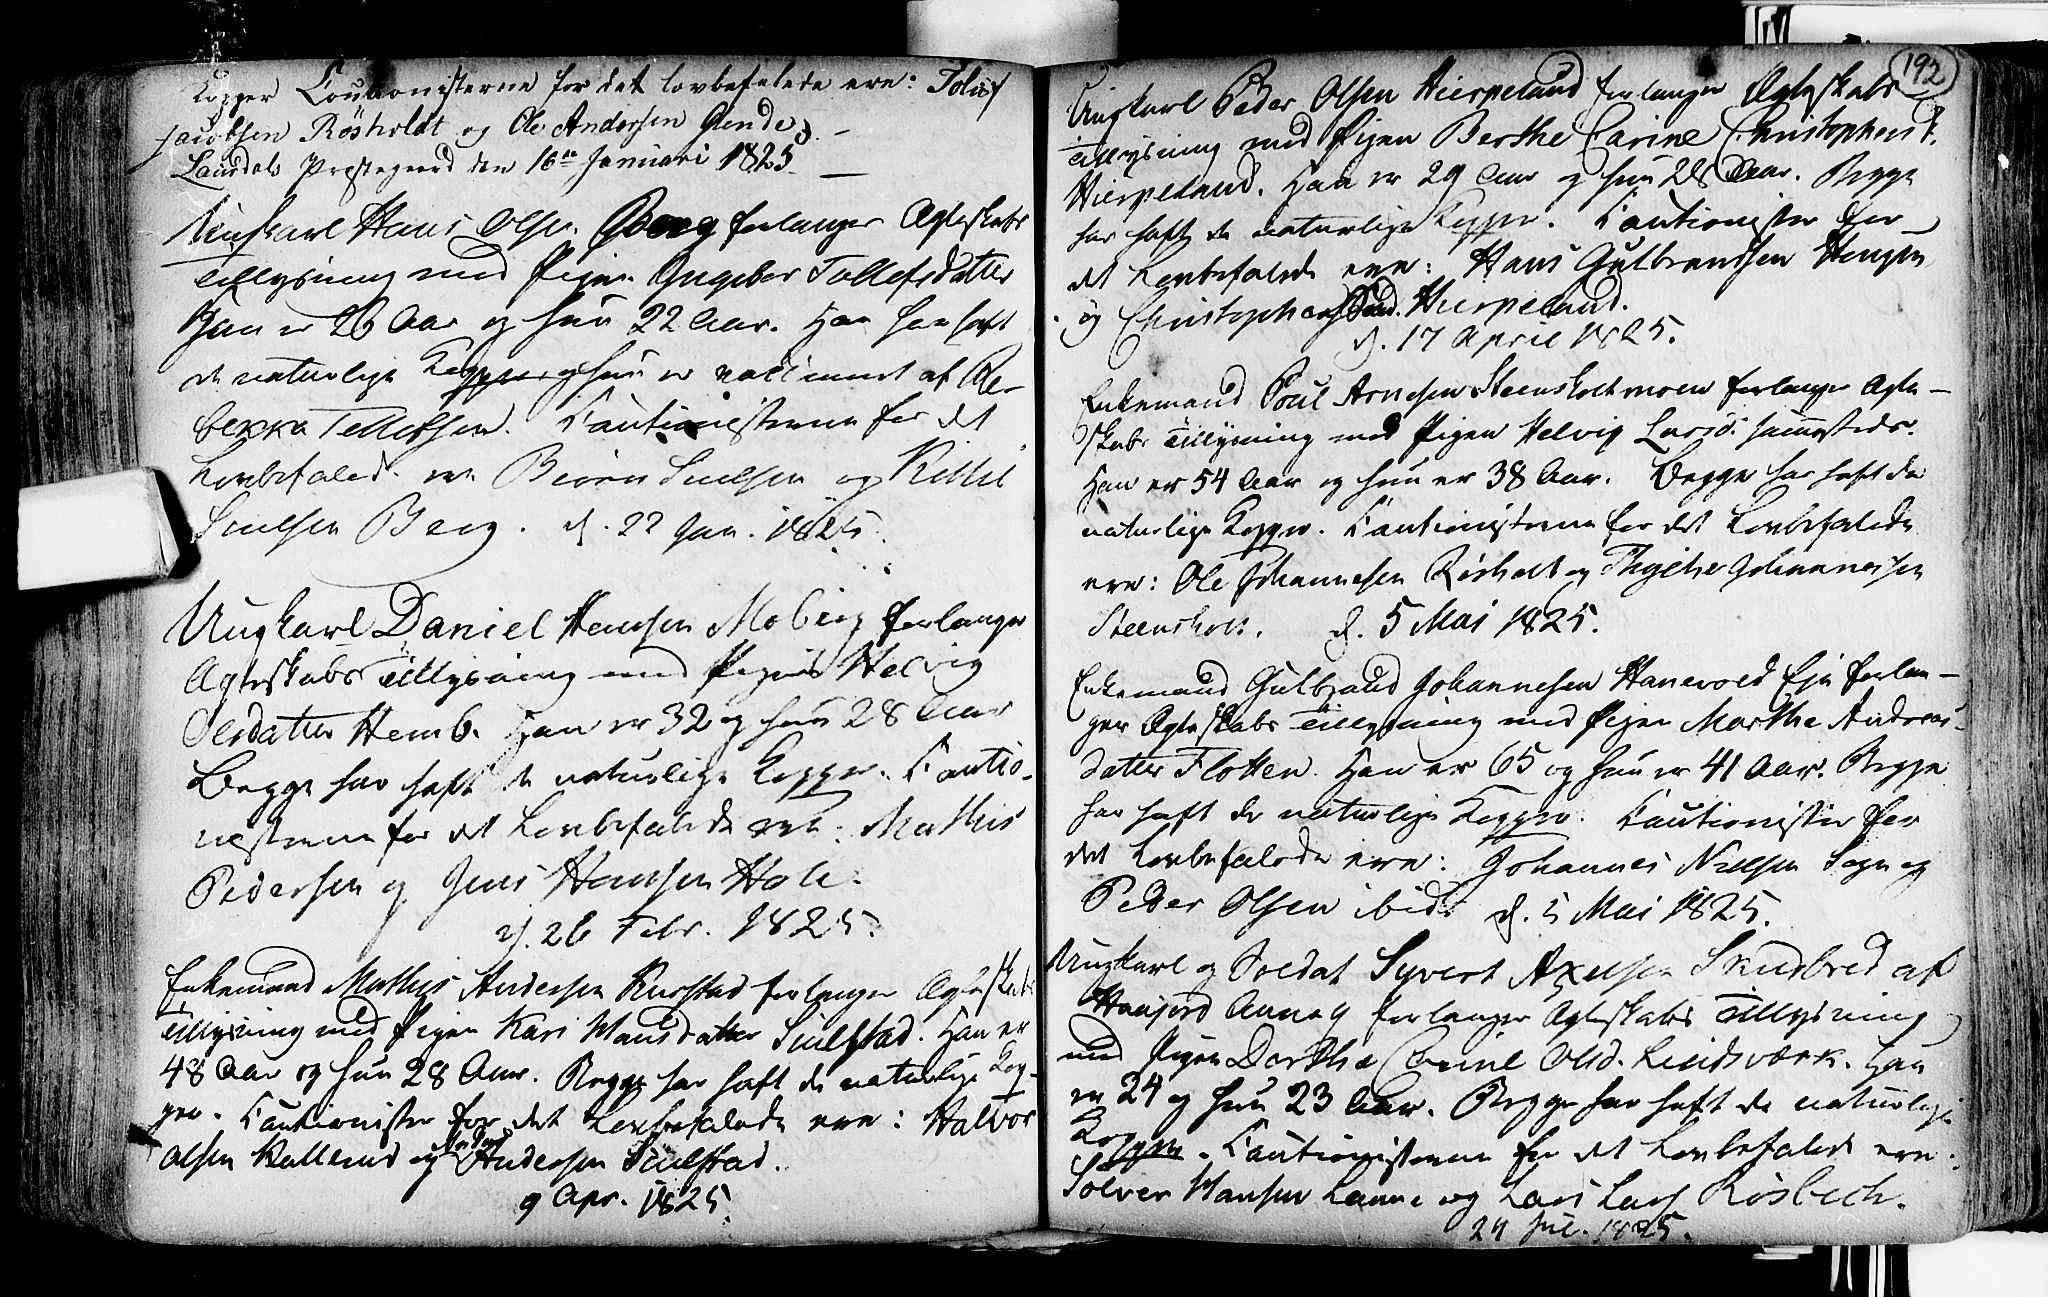 Kopper Coutionisterne for det lovbefalede ere: Tollef
Jacobsen Rösholdt og Ole Andersen Gunde
Laurdals Præstegaard den 16de Januari 1825.
Ungkarl Hans Olsen Berg forlanger Ægteskabs
Tillysning med Pigen Ingebor Tollefsdatter
Han er 26 Aar og hun 22 Aar. Han har haft
de naturlige Kopper og hun er vaccineret af Re-
bekka Tellefsen. Cautionisterne for det
Lovbefalede ere Biørn Snelsen og Kittil
Snelsen Berg. d. 22 Jan. 1825.
Ungkarl Daniel Hansen Moberg forlanger
Ægteskabs Tillysning med Pigen Helvig
Olsdatter Hemb. Han er 32 og hun 28 Aar
Begge har haft de naturlige Kopper. Cautio-
nisterne for det Lovbefalede ere: Mathis
Pedersen og Jens Hansen Hole.
d. 26 Febr. 1825.
Enkemand Mathis Andersen Rustad forlanger Ægteskabs
Tillysning med Pigen Kari Hansdatter Snelstad. Han er
48 Aar og hun 28 Aar. Begge har haft de naturlige Kop-
per. Cautionister for det Lovbefalede ere: Halvor
Olsen Kallerud og Anders Andersen Snelstad.
9 Apr. 1825.
192
Ungkarl Peder Olsen Hierpelund forlanger Ægteskabs
Tillysning med Pigen Berthe Carine Christophersd.
Hierpelund. Han er 29 Aar og hun 28 Aar. Begge
har haft de naturlige Kopper. Cautionister for
det Lovbefalede ere: Hans Gulbrandsen Hengen
og Christopher Hierpelund.
d. 17 April 1825.
Enkemand Poul Arnesen Steensholtmoen forlanger Ægte-
skabs Tillysning med Pigen Helvig Larsd. sammesteds.
Han er 54 Aar og hun er 38 Aar. Begge har haft de
naturlige Kopper. Cautionisterne for det Lovbefalede
ere: Ole Johannesen Røsholt og Thythe Johannessen
Steensholt. d. 5 Mai 1825.
Enkemand Gulbrand Johannesen Hanevold Eje forlan-
ger Ægteskabs Tillysning med Pigen Marthe Andreas-
datter Flotten. Han er 65 og hun er 41 Aar. Begge
har haft de naturlige Kopper. Cautionister for
det Lovbefalede ere: Johannes Nielsen Teigen og
Peder Olsen ibid. d. 5 Mai 1825.
Ungkarl og Soldat Syvert Axelsen Skudbred af
Anneg forlanger Ægteskabs Tillysning
med Pigen Dorthe Carine Olsd. Lindsværk. Han
er 24 og hun 23 Aar. Begge har haft de naturlige
Kopper. Cautionisterne for det Lovbefalede ere:
Sølver Hansen Lanne og Lars Lars Røsbech.
24 Jul. 1825.